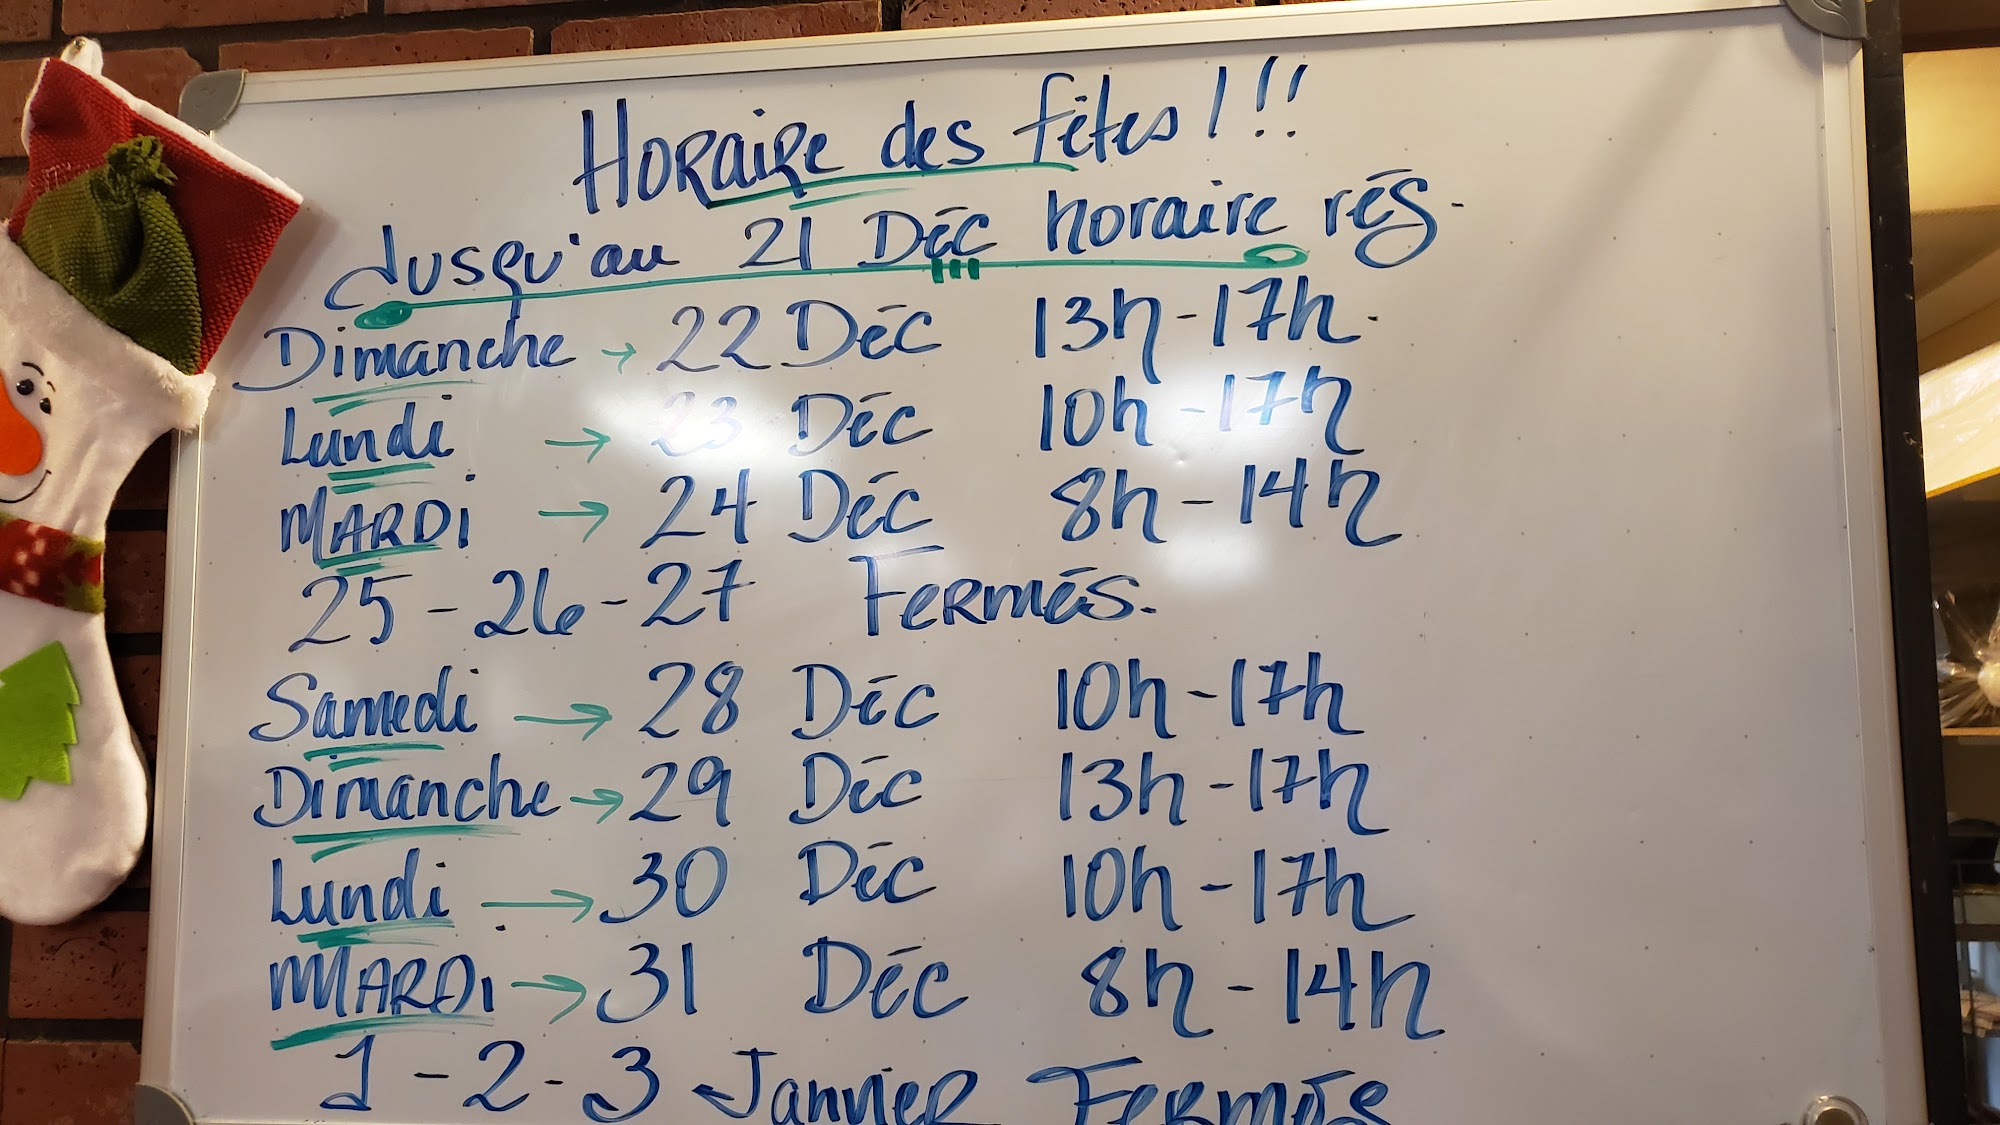 Horaire des fêtes!!!
Jusqu'au 21 Déc horaire rég.
Dimanche → 22 Déc 13h-17h.
Lundi → 23 Déc 10h-17h
MARDi → 24 Déc 8h-14h
25-26-27 Fermés.
Samedi → 28 Déc 10h-17h
Dimanche → 29 Déc 13h-17h
Lundi → 30 Déc 10h-17h
MARDi → 31 Déc 8h-14h
1-2-3 Janvier Fermés